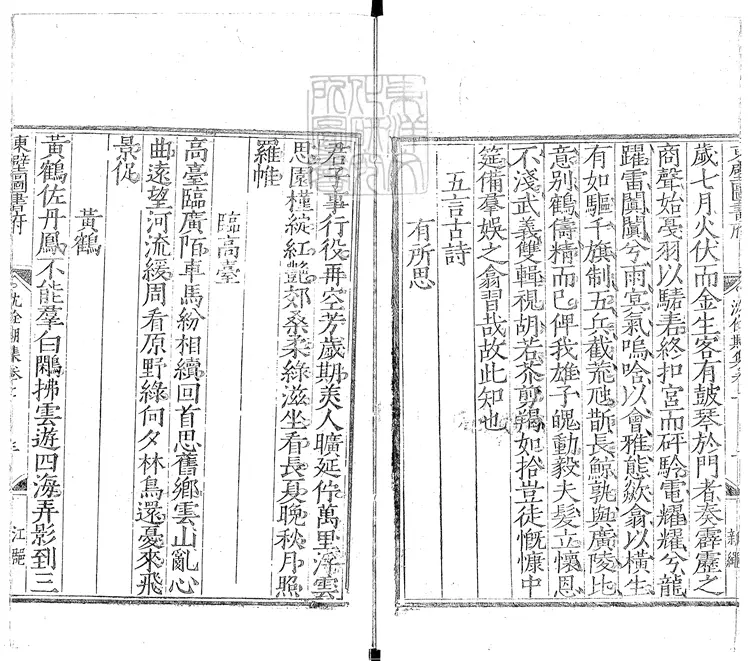 歲七月火伏而金生客有鼓琴於門者奏霹靂之
商聲始戛羽以騞砉終扣宮而砰駖電耀耀兮龍
躍雷闐闐兮雨㝠氣嗚唅以會雅態欻翕以橫生
有如驅千旗制五兵截荒虺斮長鯨孰與廣陵比
意别鶴儔精而已俾我雄子魄動毅夫髮立懷恩
不淺武義雙輯視胡若芥剪羯如拾豈徒慨慷中
筵備羣娛之翕習哉故此知也
五言古詩
有所思
君子事行役再空芳歲期美人曠延佇萬里浮雲
思園槿綻紅豔郊桑柔綠滋坐看長夏晚秋月照
羅帷
臨高臺
高臺臨廣陌車馬紛相續回首思舊鄉雲山亂心
曲遠望河流緩周看原野綠向夕林鳥還憂來飛
景促
黃鶴
黃鶴佐丹鳳不能羣白鷳拂雲遊四海弄影到三
東壁圖書府
沈佺期集卷
江